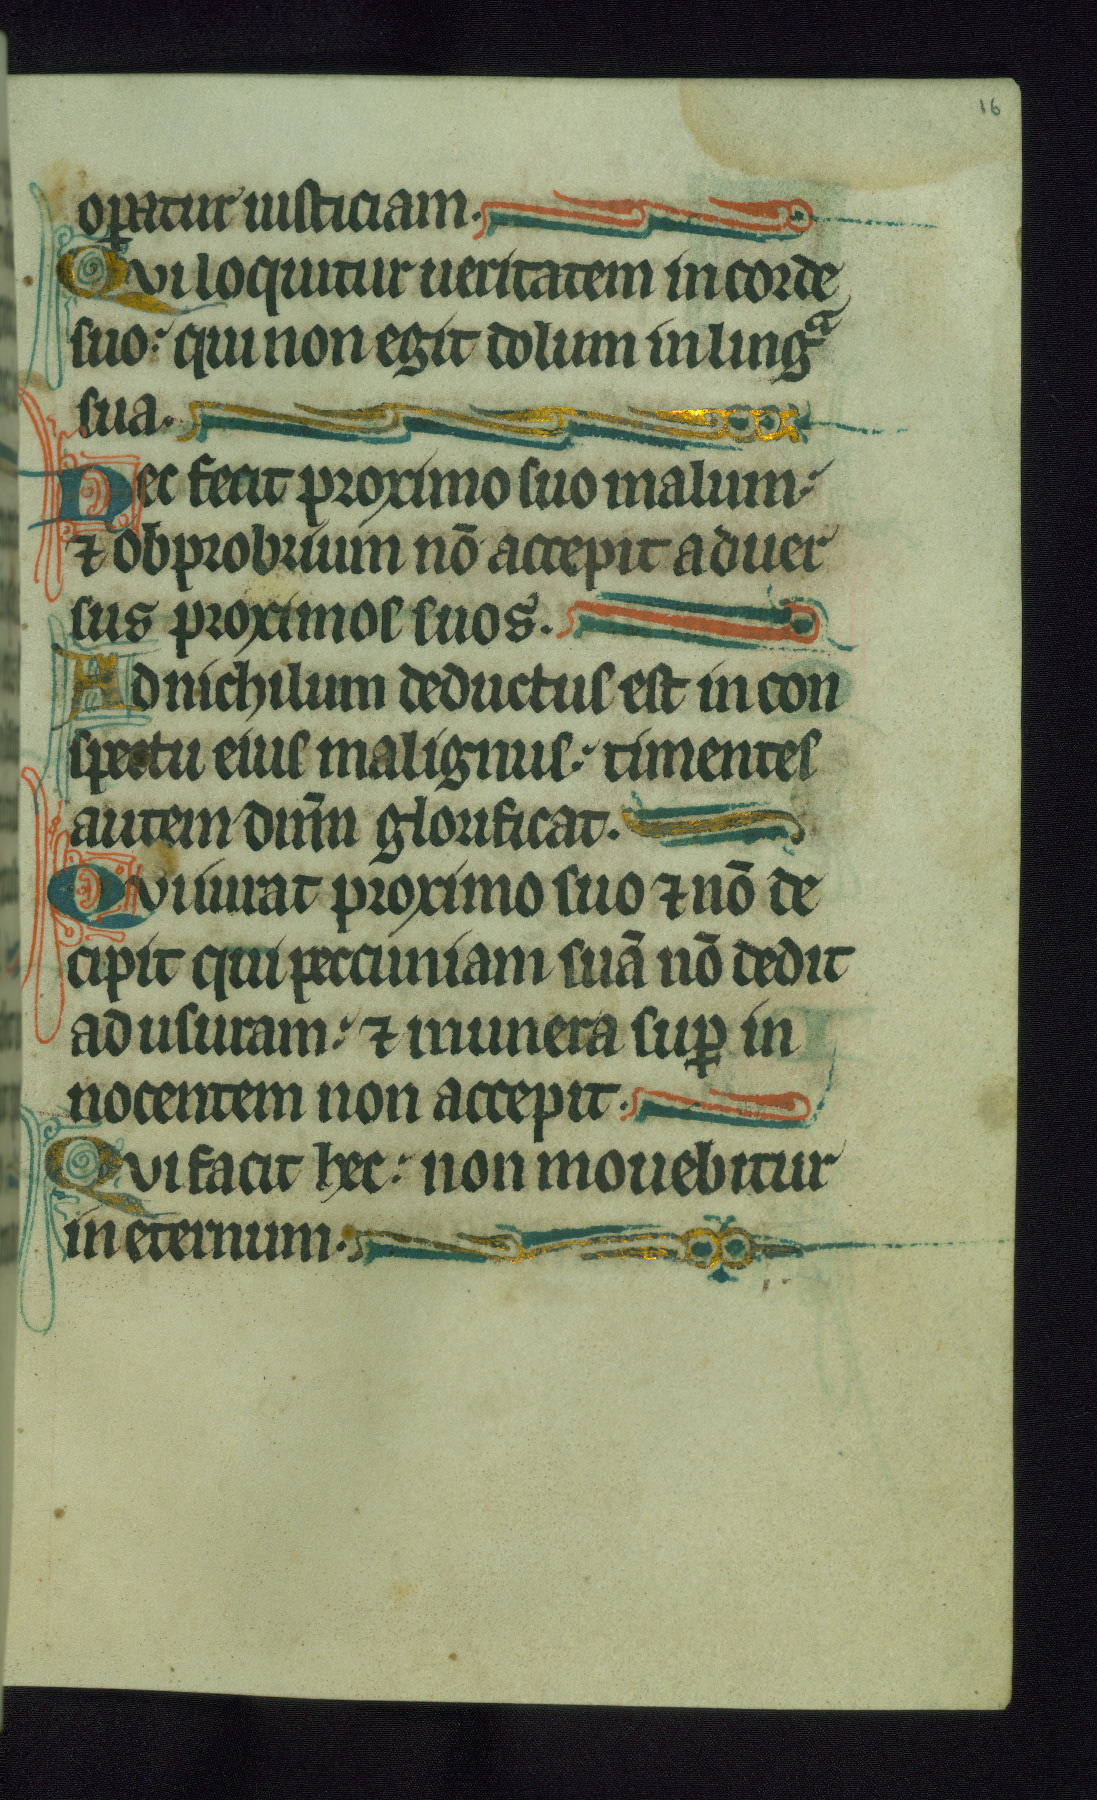 16
oꝑatur iusticiam.
Qui loquitur ueritatem in corde
suo: qui non egit dolum in lingᵃ
sua.
Nec fecit proximo suo malum:
⁊ obprobrium nō accepit aduer
sus proximos suos.
Ad nichilum deductus est in con
spectu eius malignus: timentes
autem dn̄m glorificat.
Qui iurat proximo suo ⁊ nō de
cipit qui peccuniam suā nō dedit
ad usuram: ⁊ munera suꝑ in
nocentem non accepit.
Qui facit hec: non mouebitur
in eternum.